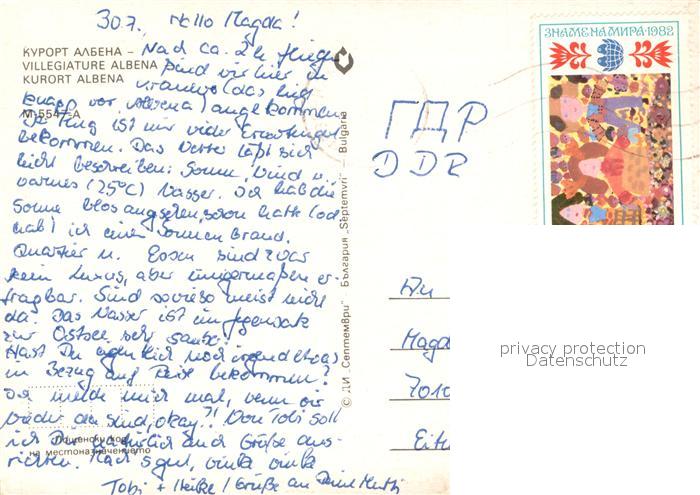 30.7. Hallo Magda!
КУРОРТ АЛБЕНА –
VILLEGIATURE ALBENA
KURORT ALBENA
M-5547-A
Nach ca. 2 h Flug
sind wir hier in
Kranevo (das liegt
knapp vor Albena) angekommen.
Der Flug ist mir wider Erwarten gut
bekommen. Das Wetter läßt sich
leicht beschreiben: Sonne, Wind u.
warmes (25°C) Wasser. Ich hab die
Sonne blos angesehen, schon hatte (od.
hab) ich einen Sonnenbrand.
Quartier u. Essen sind zwar
kein Luxus, aber einigermaßen er-
tragbar. Sind sowieso meist nicht
da. Das Wasser ist im Gegensatz
zur Ostsee sehr sauber!
Hast Du eigentlich noch irgend etwas
in Bezug auf Reise bekommen?
Ich melde mich mal, wenn wir
wieder da sind, okay?! Von Tobi soll
ich Dir natürlich auch Grüße aus-
richten. Mach's gut, winke winke
Tobi + Heike / Grüße an Deine Mutti
Пощенски код
на местоназначението
© ДИ „Септември“ България „Septemvri“ – Bulgaria
ЗНАМЕНА МИРА·1982
ГДР
DDR
An
Magd
7010
privacy protection
Datenschutz